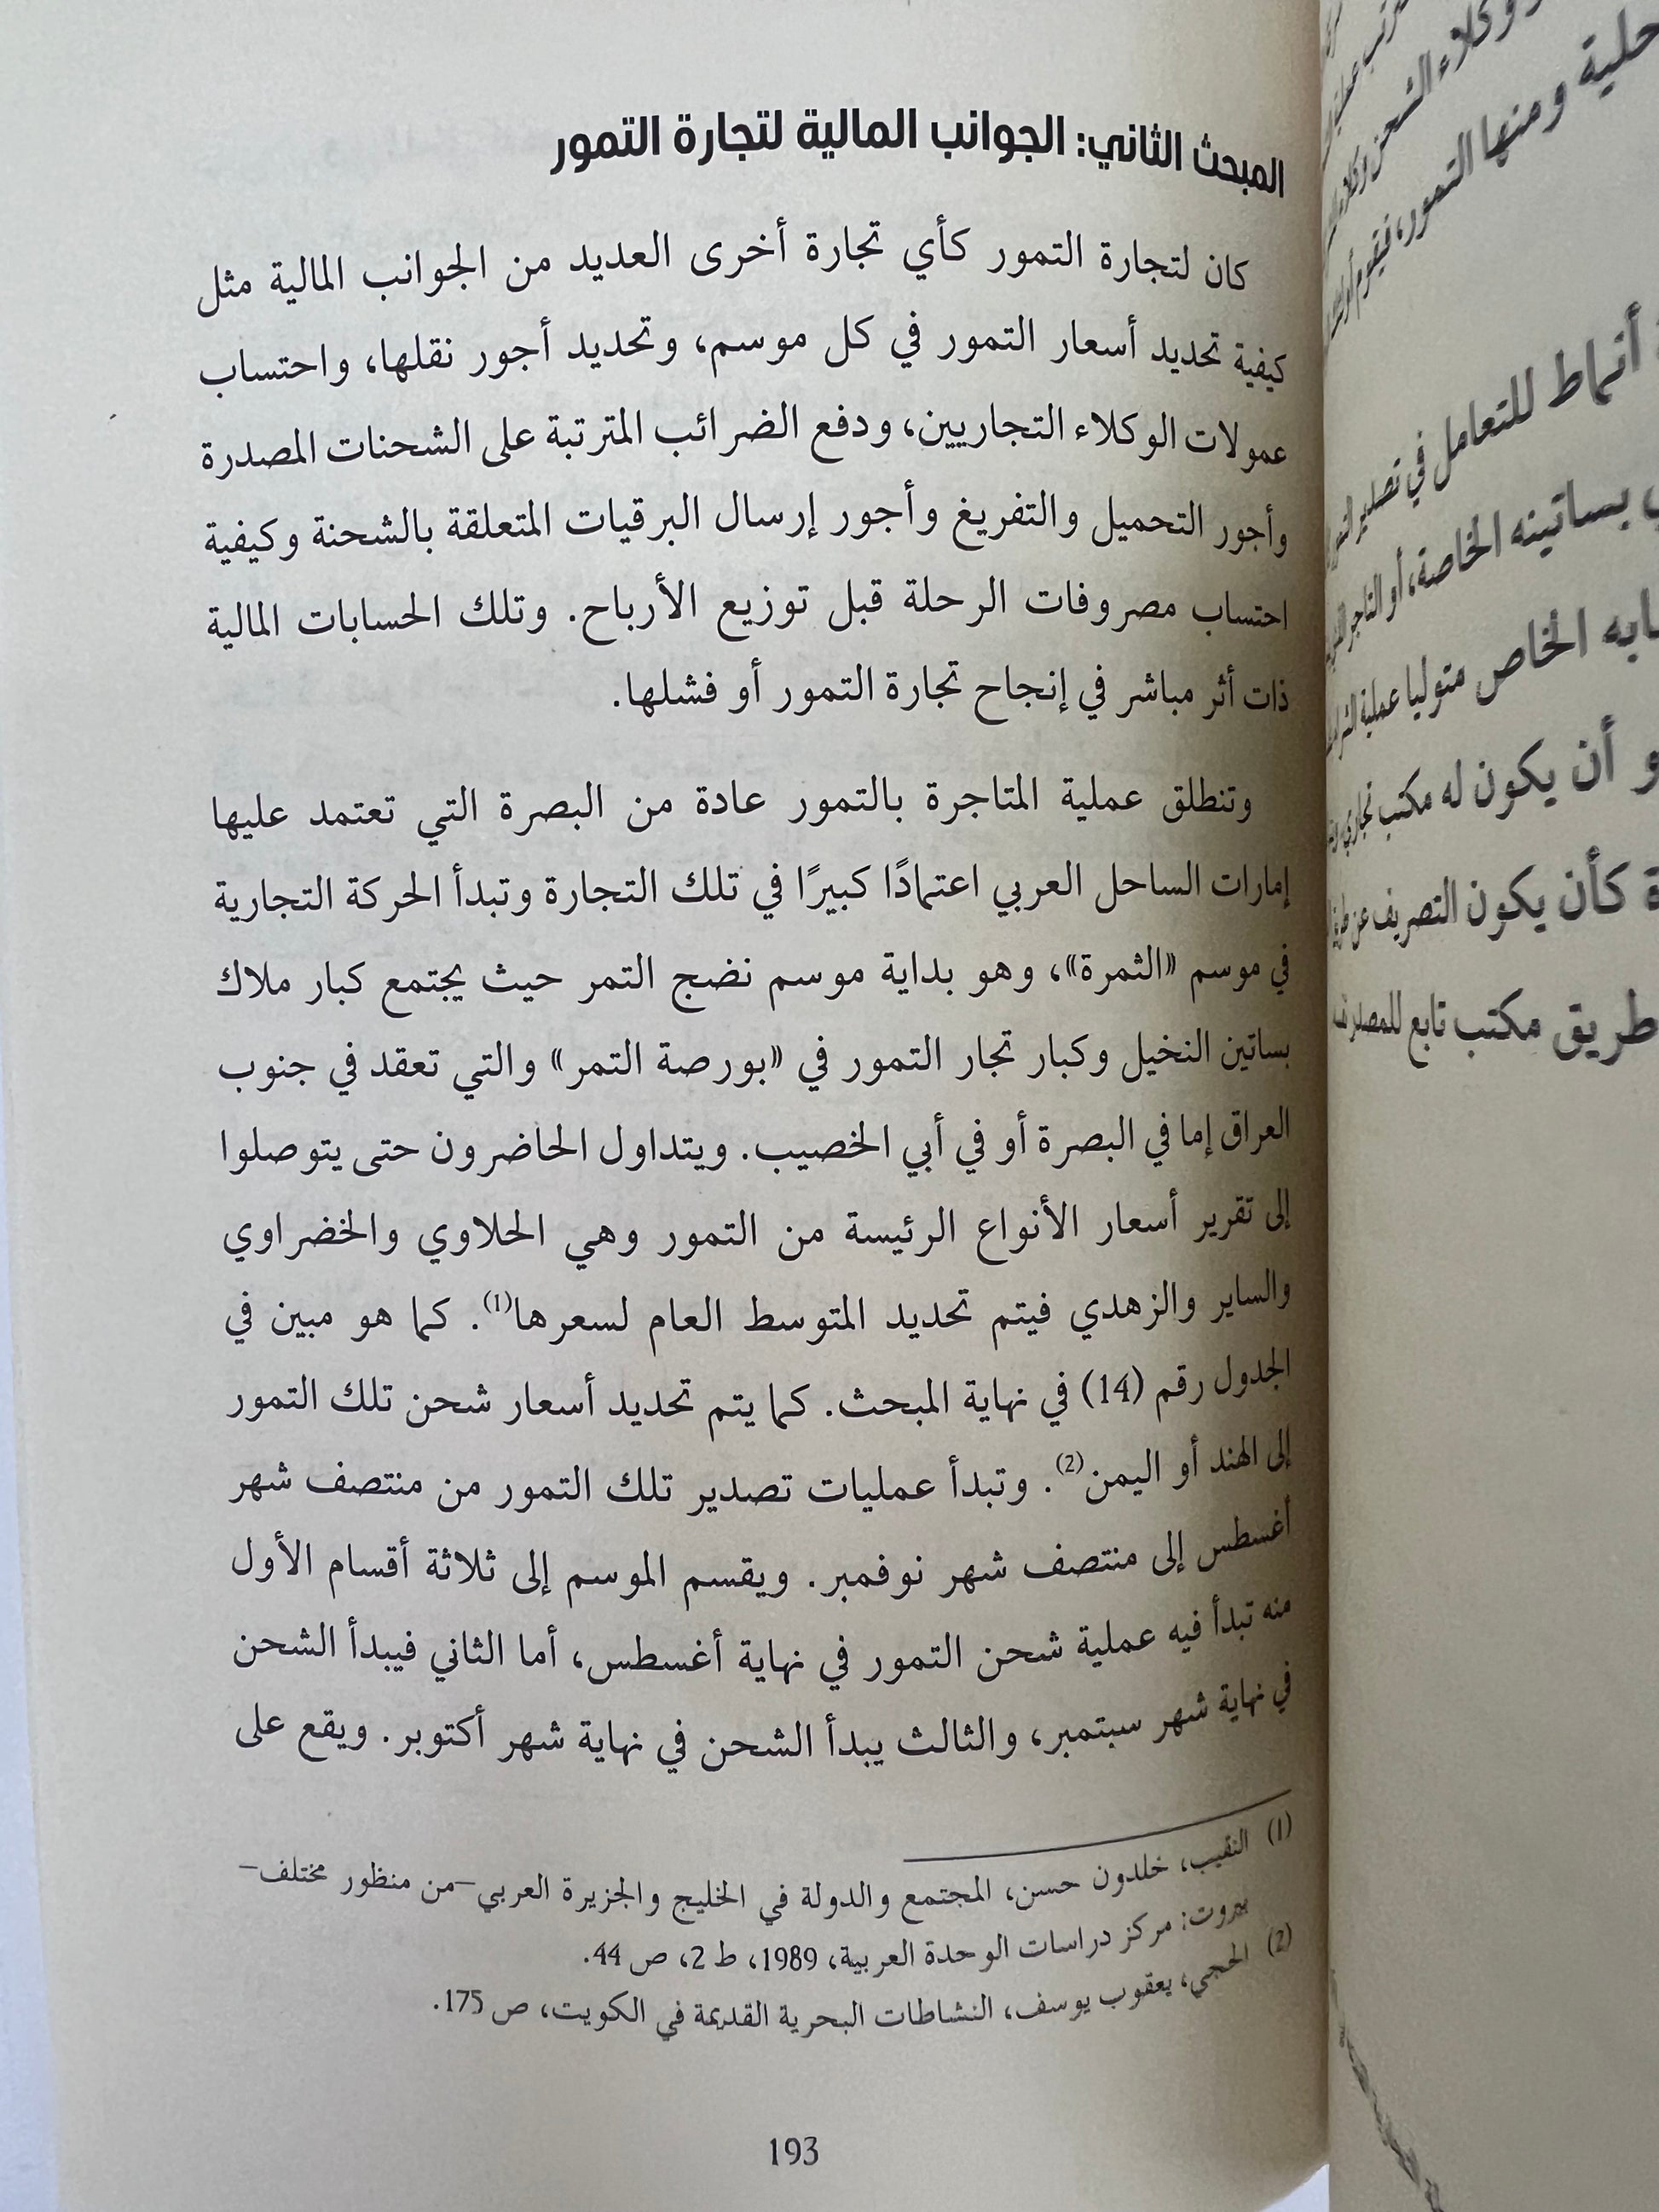 المبحث الثاني: الجوانب المالية لتجارة التمور
كان لتجارة التمور كأي تجارة أخرى العديد من الجوانب المالية مثل
كيفية تحديد أسعار التمور في كل موسم، وتحديد أجور نقلها، واحتساب
عمولات الوكلاء التجاريين، ودفع الضرائب المترتبة على الشحنات المصدرة
وأجور التحميل والتفريغ وأجور إرسال البرقيات المتعلقة بالشحنة وكيفية
احتساب مصروفات الرحلة قبل توزيع الأرباح. وتلك الحسابات المالية
ذات أثر مباشر في إنجاح تجارة التمور أو فشلها.
وتنطلق عملية المتاجرة بالتمور عادة من البصرة التي تعتمد عليها
إمارات الساحل العربي اعتمادًا كبيرًا في تلك التجارة وتبدأ الحركة التجارية
في موسم «الثمرة»، وهو بداية موسم نضج التمر حيث يجتمع كبار ملاك
بساتين النخيل وكبار تجار التمور في «بورصة التمر» والتي تعقد في جنوب
العراق إما في البصرة أو في أبي الخصيب. ويتداول الحاضرون حتى يتوصلوا
إلى تقرير أسعار الأنواع الرئيسة من التمور وهي الحلاوي والخضراوي
والساير والزهدي فيتم تحديد المتوسط العام لسعرها(1). كما هو مبين في
الجدول رقم (14) في نهاية المبحث. كما يتم تحديد أسعار شحن تلك التمور
إلى الهند أو اليمن(2). وتبدأ عمليات تصدير تلك التمور من منتصف شهر
أغسطس إلى منتصف شهر نوفمبر. ويقسم الموسم إلى ثلاثة أقسام الأول
منه تبدأ فيه عملية شحن التمور في نهاية أغسطس، أما الثاني فيبدأ الشحن
في نهاية شهر سبتمبر، والثالث يبدأ الشحن في نهاية شهر أكتوبر. ويقع على
(1) النقيب، خلدون حسن، المجتمع والدولة في الخليج والجزيرة العربي-من منظور مختلف-
بيروت: مركز دراسات الوحدة العربية، 1989، ط 2، ص 44.
(2) الحجي، يعقوب يوسف، النشاطات البحرية القديمة في الكويت، ص 175.
193
حلية ومنها التمور، فيقوم
أنماط للتعامل في تصدير
بساتينه الخاصة، أو التاجر
الخاص متوليا عملية
أن يكون له مكتب تجاري
كأن يكون التصريف عن
طريق مكتب تابع للمصدر